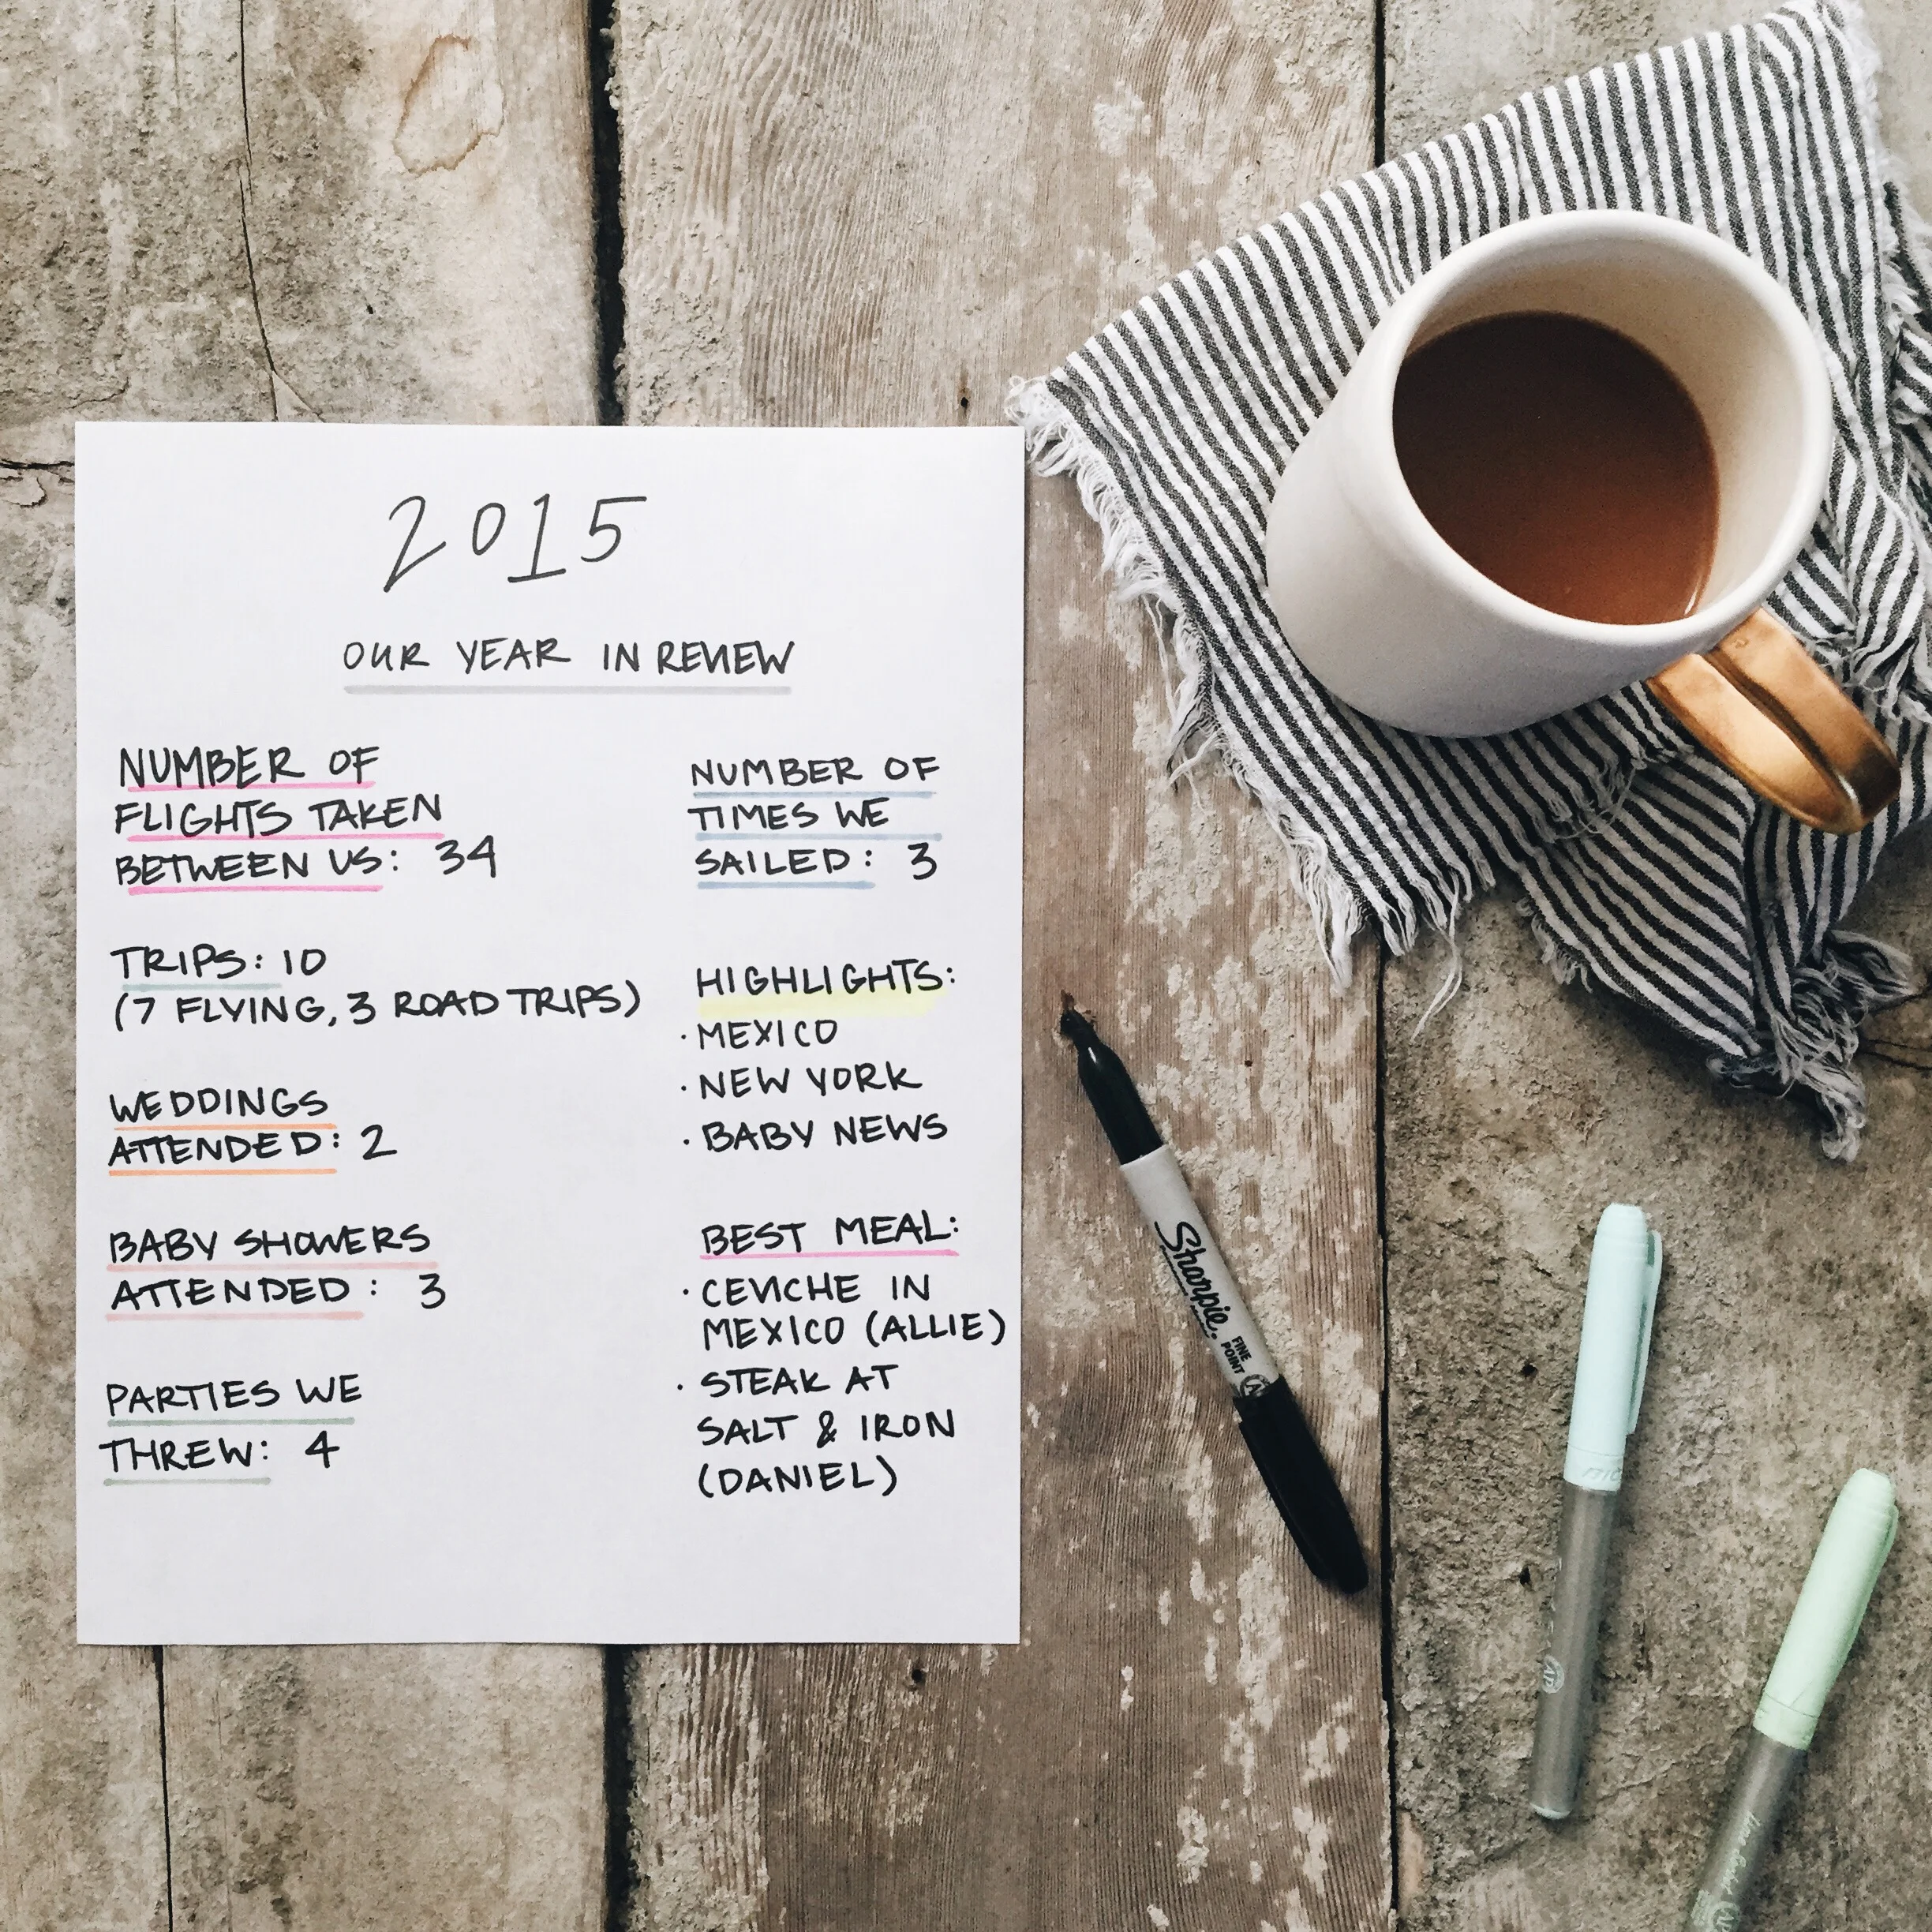 2015
OUR YEAR IN REVIEW
NUMBER OF
FLIGHTS TAKEN
BETWEEN US: 34
TRIPS: 10
(7 FLYING, 3 ROAD TRIPS)
WEDDINGS
ATTENDED: 2
BABY SHOWERS
ATTENDED: 3
PARTIES WE
THREW: 4
NUMBER OF
TIMES WE
SAILED: 3
HIGHLIGHTS:
· MEXICO
· NEW YORK
· BABY NEWS
BEST MEAL:
· CEVICHE IN
MEXICO (ALLIE)
· STEAK AT
SALT & IRON
(DANIEL)
Sharpie.
FINE
POINT
AP
BIC
AP